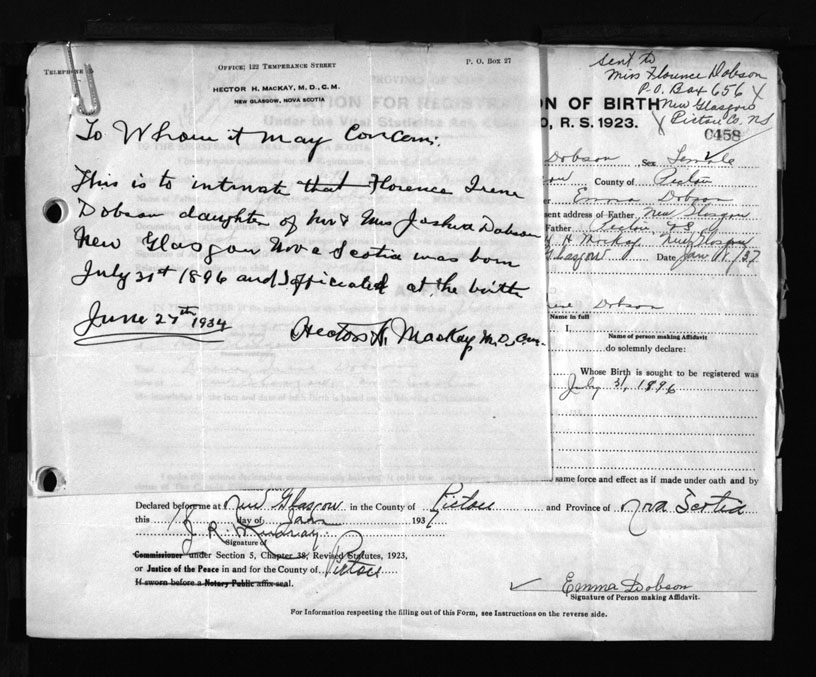 TELEPHONE
OFFICE; 122 TEMPERANCE STREET
P. O. BOX 27
HECTOR H. MACKAY, M. D., C. M.
NEW GLASGOW, NOVA SCOTIA
To Whom it may Concern:
This is to intimate that Florence Irene
Dobson daughter of Mr & Mrs Joshua Dobson
New Glasgow Nova Scotia was born
July 31st 1896 and I officiated at the birth
June 27th 1934
Hector H. MacKay M.D., C.M.
sent to
Miss Florence Dobson
P.O. Box 656
New Glasgow
Pictou Co. NS
N OF BIRTH
, R. S. 1923.
0458
Dobson Sex Female
County of Pictou
Emma Dobson
ent address of Father New Glasgow
Father Pictou
H. H. MacKay New Glasgow
Glasgow Date Jan 18/37
Dobson
Name in full
I,
Name of person making Affidavit
do solemnly declare:
Whose Birth is sought to be registered was
July 31, 1896
same force and effect as if made under oath and by
Declared before me at New Glasgow in the County of Pictou and Province of Nova Scotia
this 18 day of Jan 1937
Signature of
Commissioner under Section 5, Chapter 38, Revised Statutes, 1923,
or Justice of the Peace in and for the County of Pictou
If sworn before a Notary Public affix seal.
Emma Dobson
Signature of Person making Affidavit.
For Information respecting the filling out of this Form, see Instructions on the reverse side.